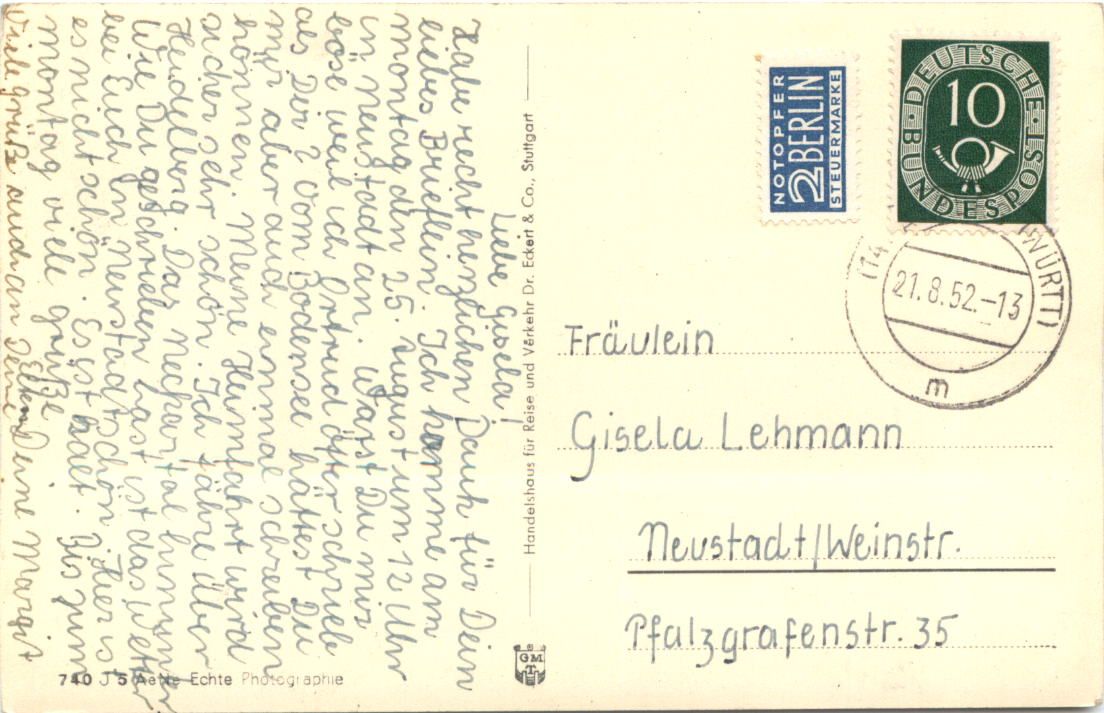 Liebe Gisela!
Habe recht herzlichen Dank für Dein
liebes Brieflein. Ich komme am
montag den 25. August um 12 Uhr
in Neustadt an. Warst Du mir
böse weil ich Ortrud öfter schrieb
als Dir? Vom Bodensee hättest Du
mir aber auch einmal schreiben
können. Meine Heimfahrt wird
sicher sehr schön. Ich fahre über
Heidelberg. Das Neckartal hinunter
Wie Du geschrieben hast ist das Wetter
bei Euch in Neustadt schön. Hier is
es nicht schön. Es ist kalt. Bis zum
montag viele grüße Deine Margit
Viele grüße auch an Deine Eltern
Handelshaus für Reise und Verkehr Dr. Eckert & Co., Stuttgart
GMT
740 J 5 Echte Photographie
NOTOPFER
2 BERLIN
STEUERMARKE
DEUTSCHE
BUNDESPOST
10
(14 WÜRTT)
21.8.52.-13
m
Fräulein
Gisela Lehmann
Neustadt/Weinstr.
Pfalzgrafenstr. 35